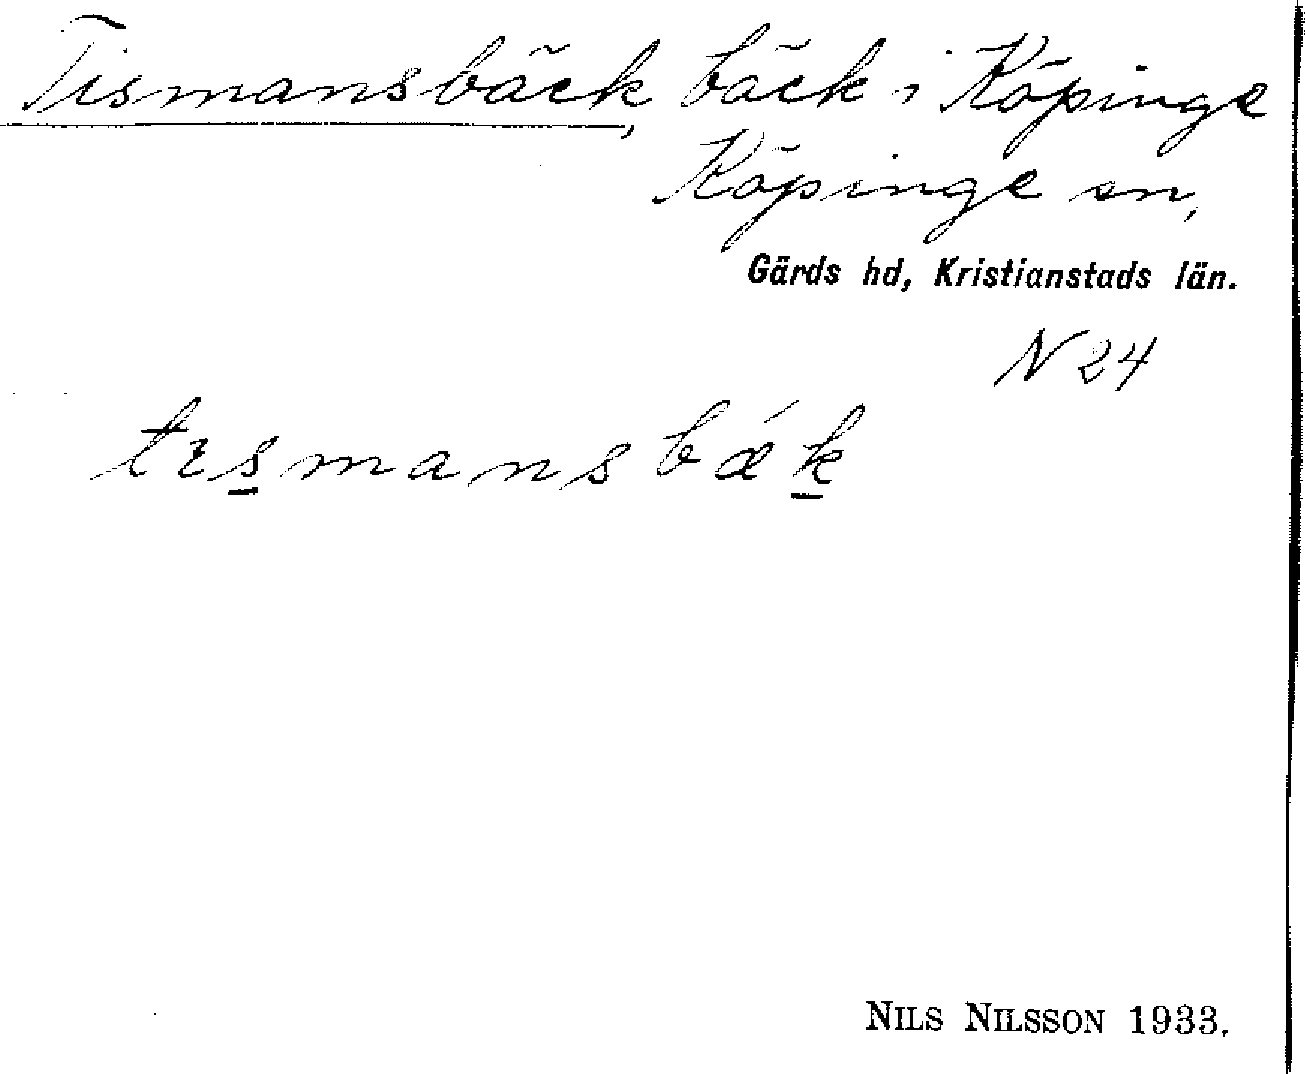 Tismansbäck, bäck i Köpinge
Köpinge sn,
Gärds hd, Kristianstads län.
N 24
tɪs̲mansbǽk̲
NILS NILSSON 1933.